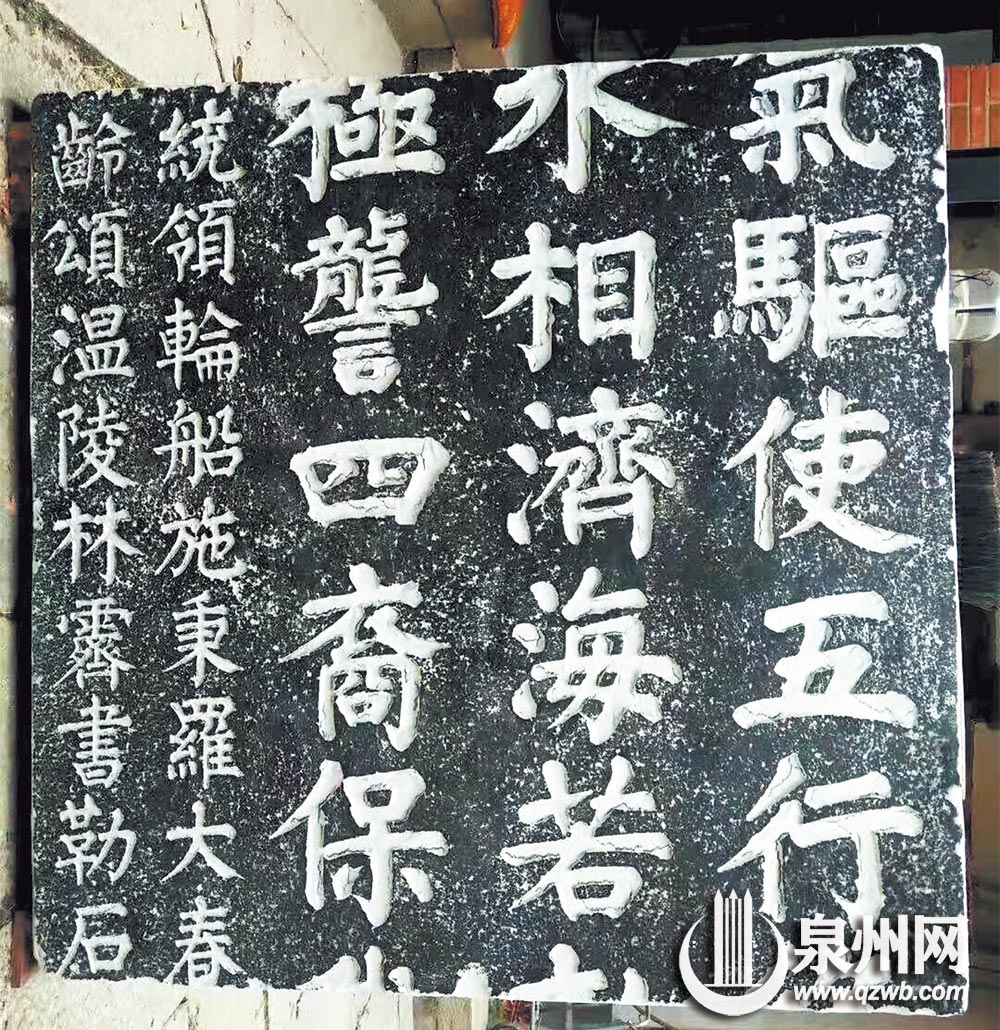 氣驅使五行
水相濟海若
極讋四裔保
統領輪船施秉羅大春
齡頌温陵林霽書勒石
泉州网
www.qzwb.com